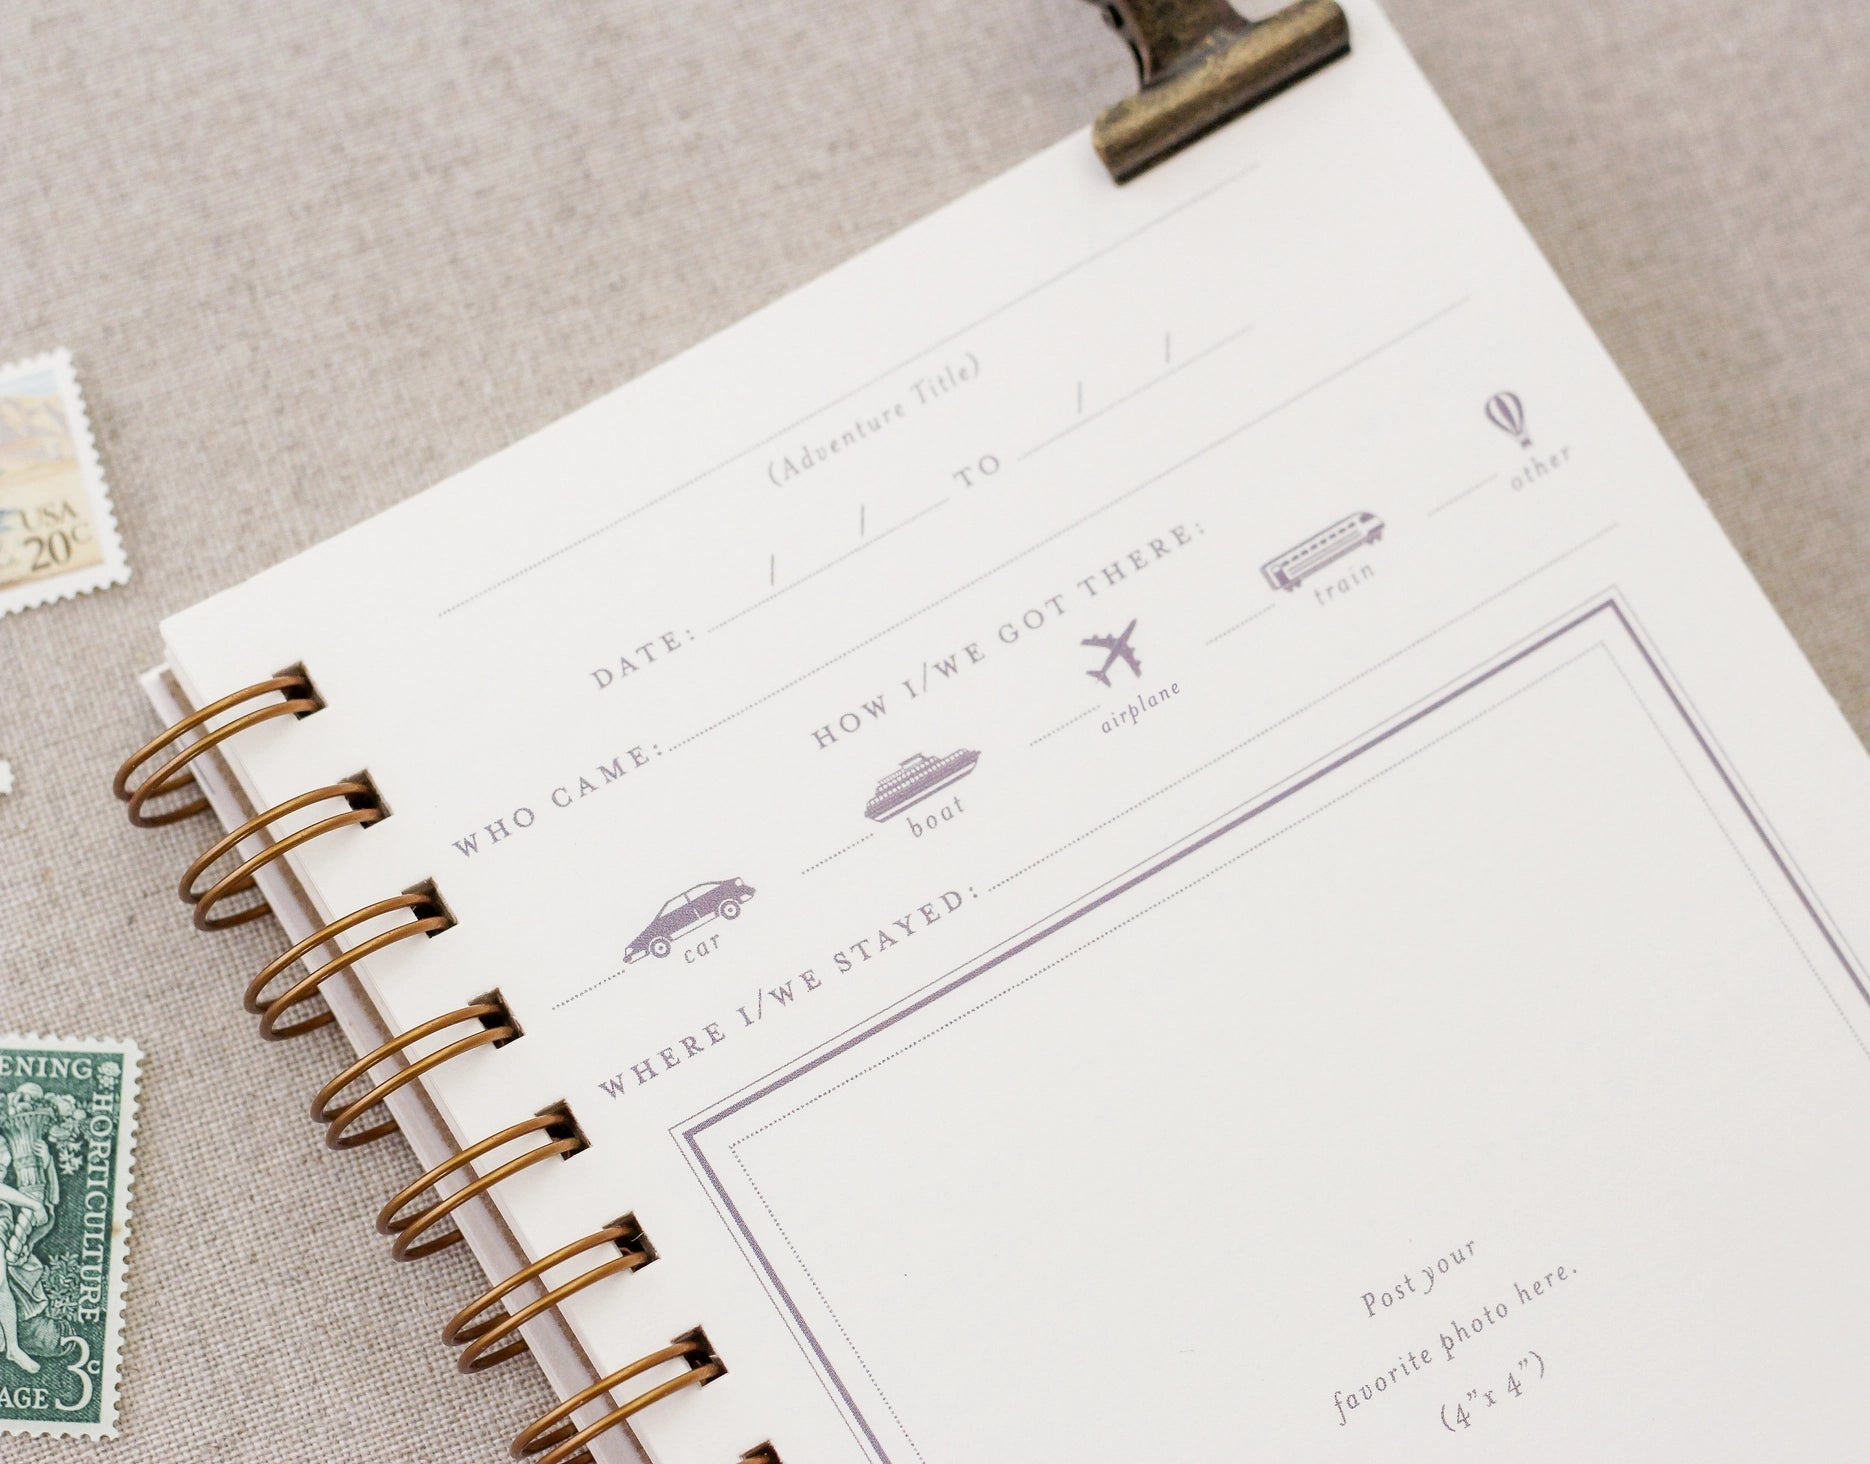 (Adventure Title)
DATE: / / TO / /
WHO CAME:
HOW I/WE GOT THERE:
car boat airplane train other
WHERE I/WE STAYED:
Post your
favorite photo here.
(4”x 4”)
USA
20c
ENING
HORTICULTURE
AGE 3c